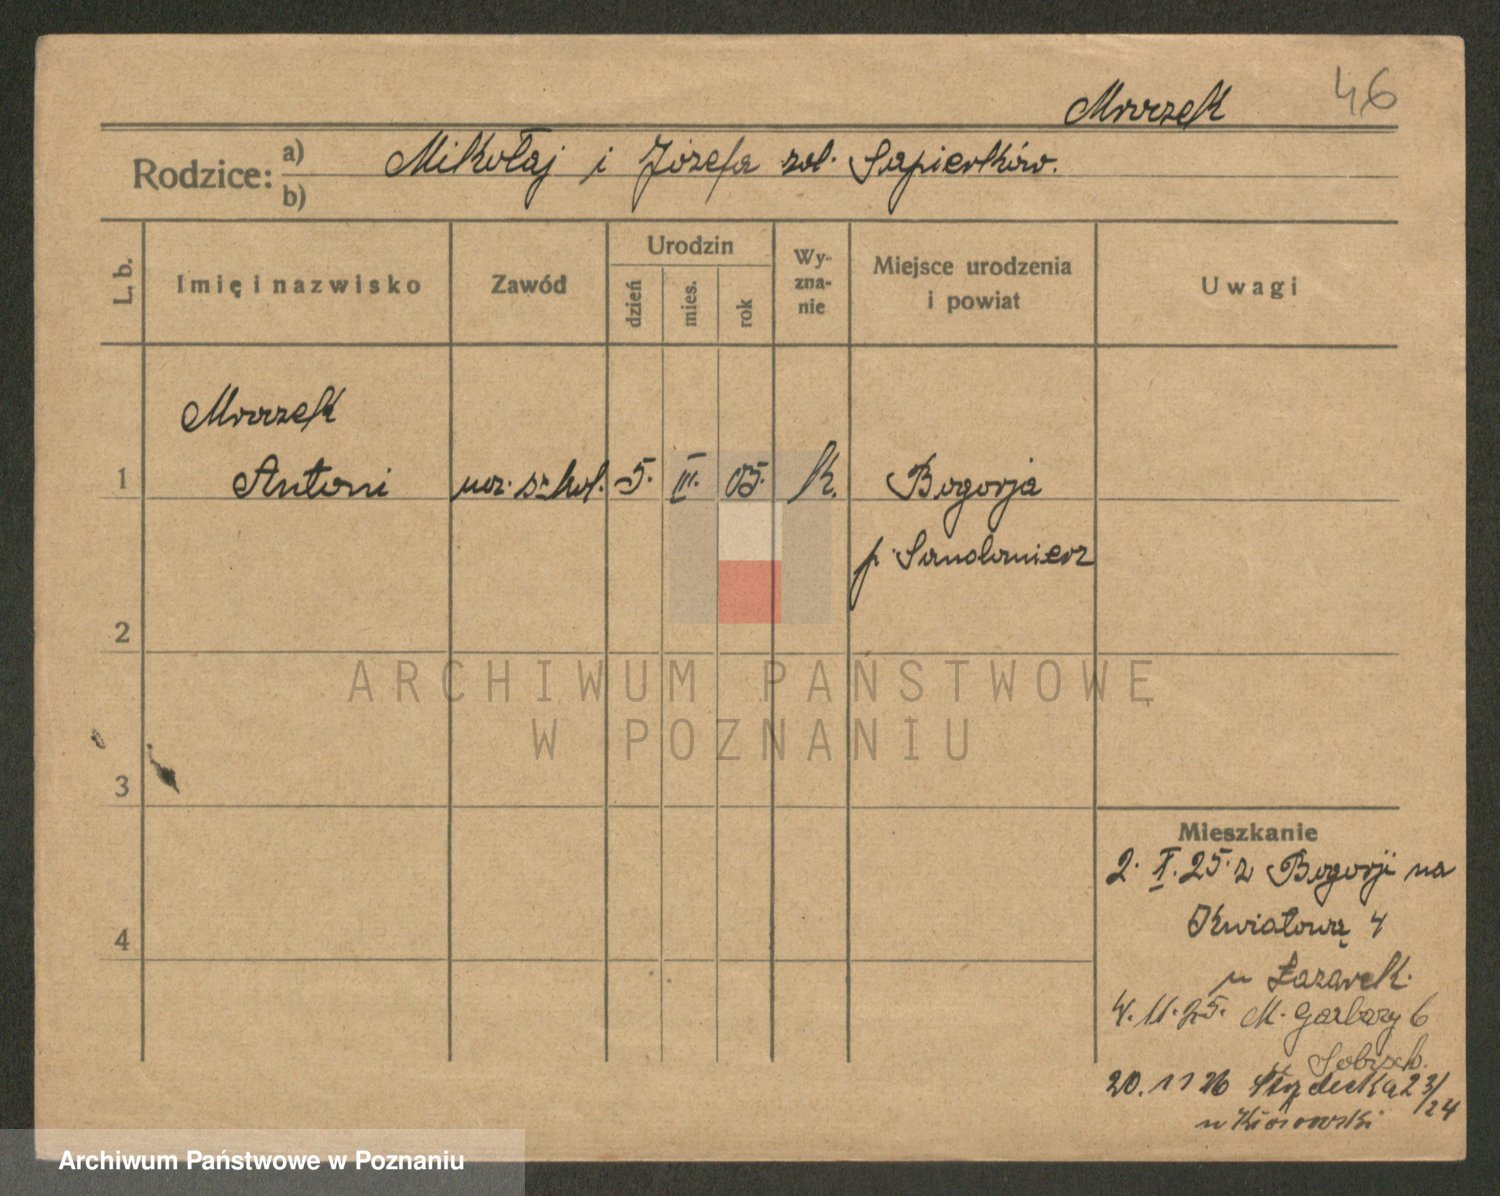 46
Mroczek
Rodzice: a) Mikołaj i Józefa zol. Sapierków.
b)
L. b.
Imię i nazwisko
Zawód
Urodzin
dzień
mies.
rok
Wy-
zna-
nie
Miejsce urodzenia
i powiat
Uwagi
Mroczek
1 Antoni ucz. szkol. 5. III. 05. k. Bogorja
p. Sandomierz
2
3
4
Mieszkanie
2. X. 25. z Bogorji na
Kwiatową 4
u Łazarek.
4. 11. 25. M. Garbary 6
20. 11 26 23/24
u
ARCHIWUM PAŃSTWOWE
W POZNANIU
Archiwum Państwowe w Poznaniu